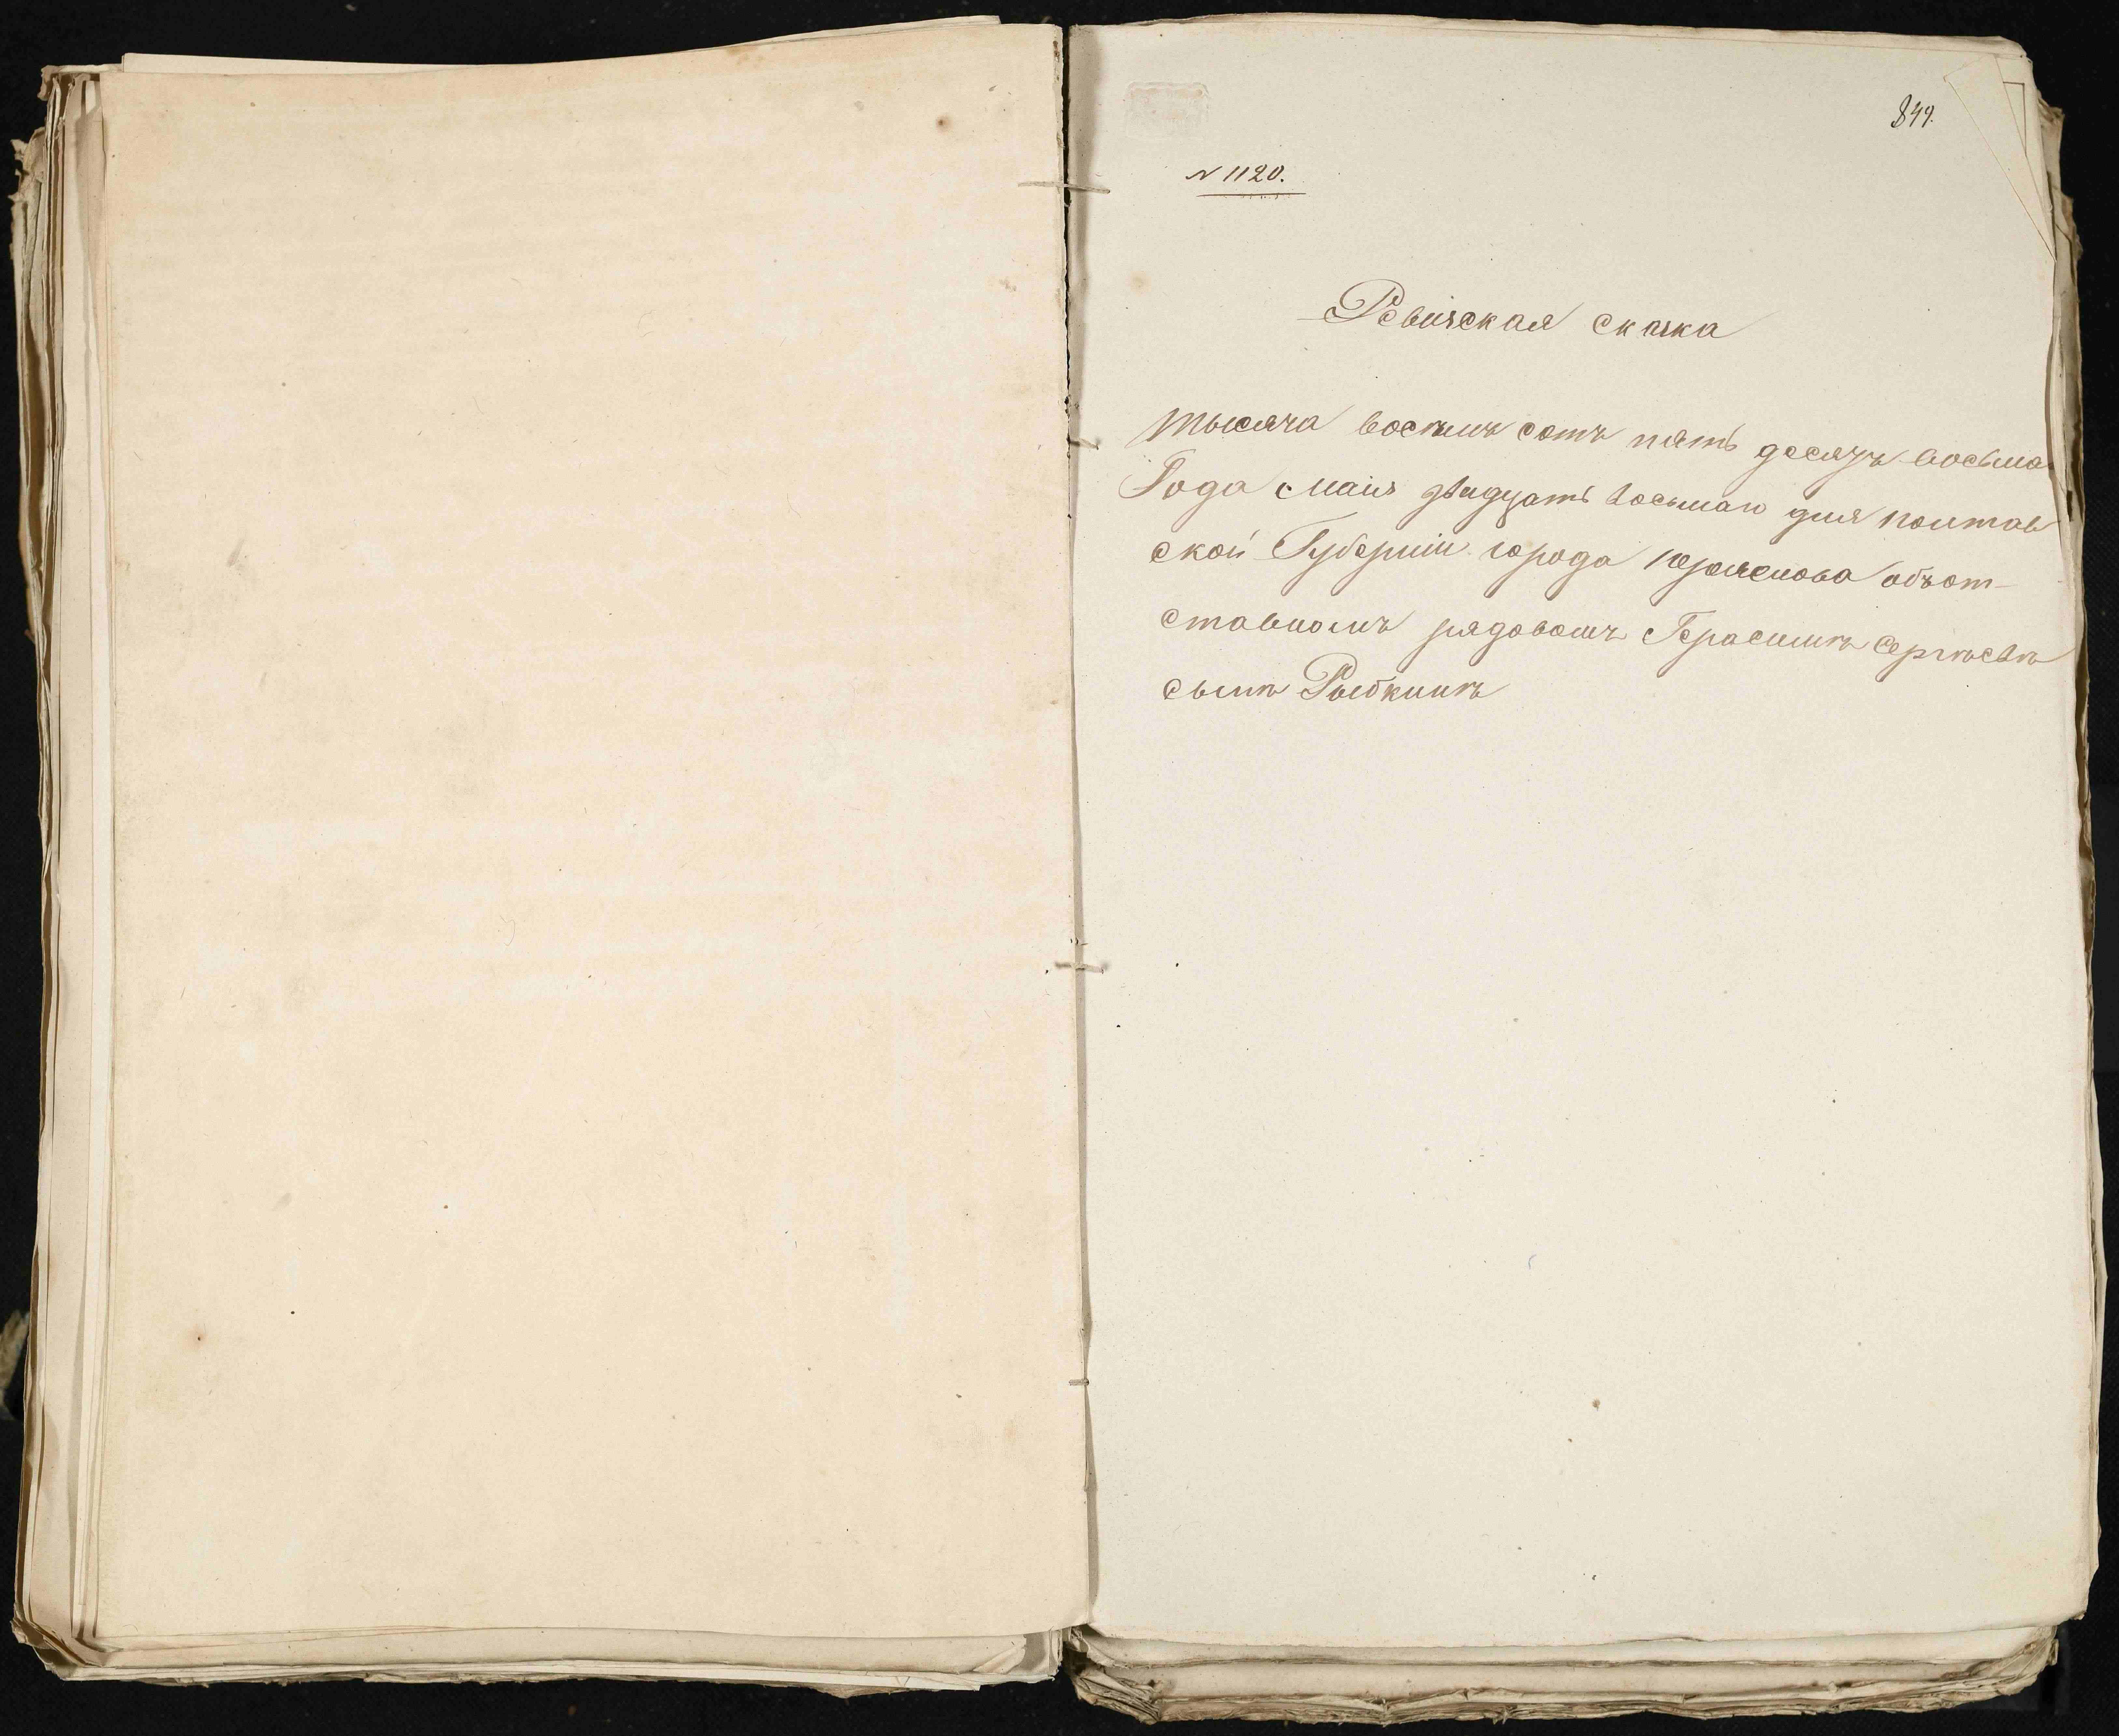 849.
N 1120.
Ревизская сказка
тысяча восемъ сотъ пять десятъ восьма
Года маія двадцать восьмаго дня полтав
ской Губерніи города
объот-
ставномъ рядовомъ Герасимѣ Сергѣевѣ
сынѣ Рыбкинѣ